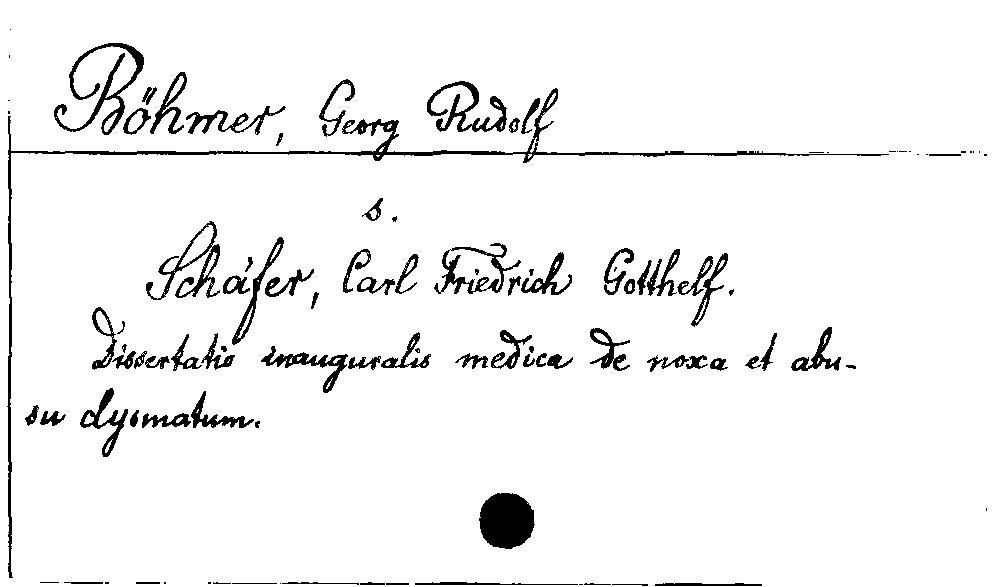 Böhmer, Georg Rudolf
s.
Schäfer, Carl Friedrich Gotthelf.
Dissertatio inauguralis medica de noxa et abu-
su clysmatum.